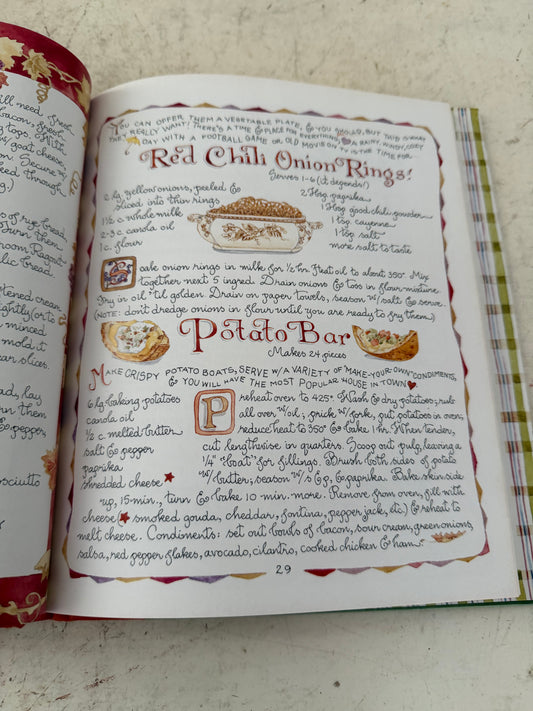 ill need fresh
bacon, fresh
toasts, with
w/goat cheese,
own. Secure w/
eed through
g.)
s of rye bread,
Turn them
room Ragout
lic bread.
tened cream
lightly (or to
minced
mold it
ear slices.
ads, lay
urn them
& pepper,
osciutto
YOU CAN OFFER THEM A VEGETABLE PLATE, & YOU SHOULD, BUT THIS IS WHAT
THEY REALLY WANT! THERE'S A TIME & PLACE FOR EVERYTHING, ♥ A RAINY, WINDY, COZY
DAY WITH A FOOTBALL GAME OR OLD MOVIE ON TV IS THE TIME FOR...
Red Chili Onion Rings!
Serves 1-6 (it depends!)
2 lg. yellow onions, peeled &
sliced into thin rings
1½ c. whole milk
2-3 c. canola oil
1 c. flour
2 Tbsp. paprika
1 Tbsp. good chili powder
1 tsp. cayenne
1 tsp. salt
more salt to taste
Soak onion rings in milk for ½ hr. Heat oil to about 350°. Mix
together next 5 ingred. Drain onions & toss in flour mixture.
Fry in oil 'til golden. Drain on paper towels, season w/salt & serve.
(NOTE: don't dredge onions in flour until you are ready to fry them.)
Potato Bar
Makes 24 pieces
MAKE CRISPY POTATO BOATS, SERVE W/A VARIETY OF "MAKE-YOUR-OWN" CONDIMENTS,
& YOU WILL HAVE THE MOST POPULAR HOUSE IN TOWN ♥
6 lg. baking potatoes
canola oil
½ c. melted butter
salt & pepper
paprika
shredded cheese ★
Preheat oven to 425°. Wash & dry potatoes; rub
all over w/oil; prick w/fork, put potatoes in oven;
reduce heat to 350° & bake 1 hr. When tender,
cut lengthwise in quarters. Scoop out pulp, leaving a
¼" "boat" for fillings. Brush both sides of potato
w/butter; season w/s & p, & paprika. Bake skin side
up, 15 min., turn & bake 10 min. more. Remove from oven, fill with
cheese (★ smoked gouda, cheddar, fontina, pepper jack, etc.) & reheat to
melt cheese. Condiments: set out bowls of bacon, sour cream, green onions,
salsa, red pepper flakes, avocado, cilantro, cooked chicken & ham.
29